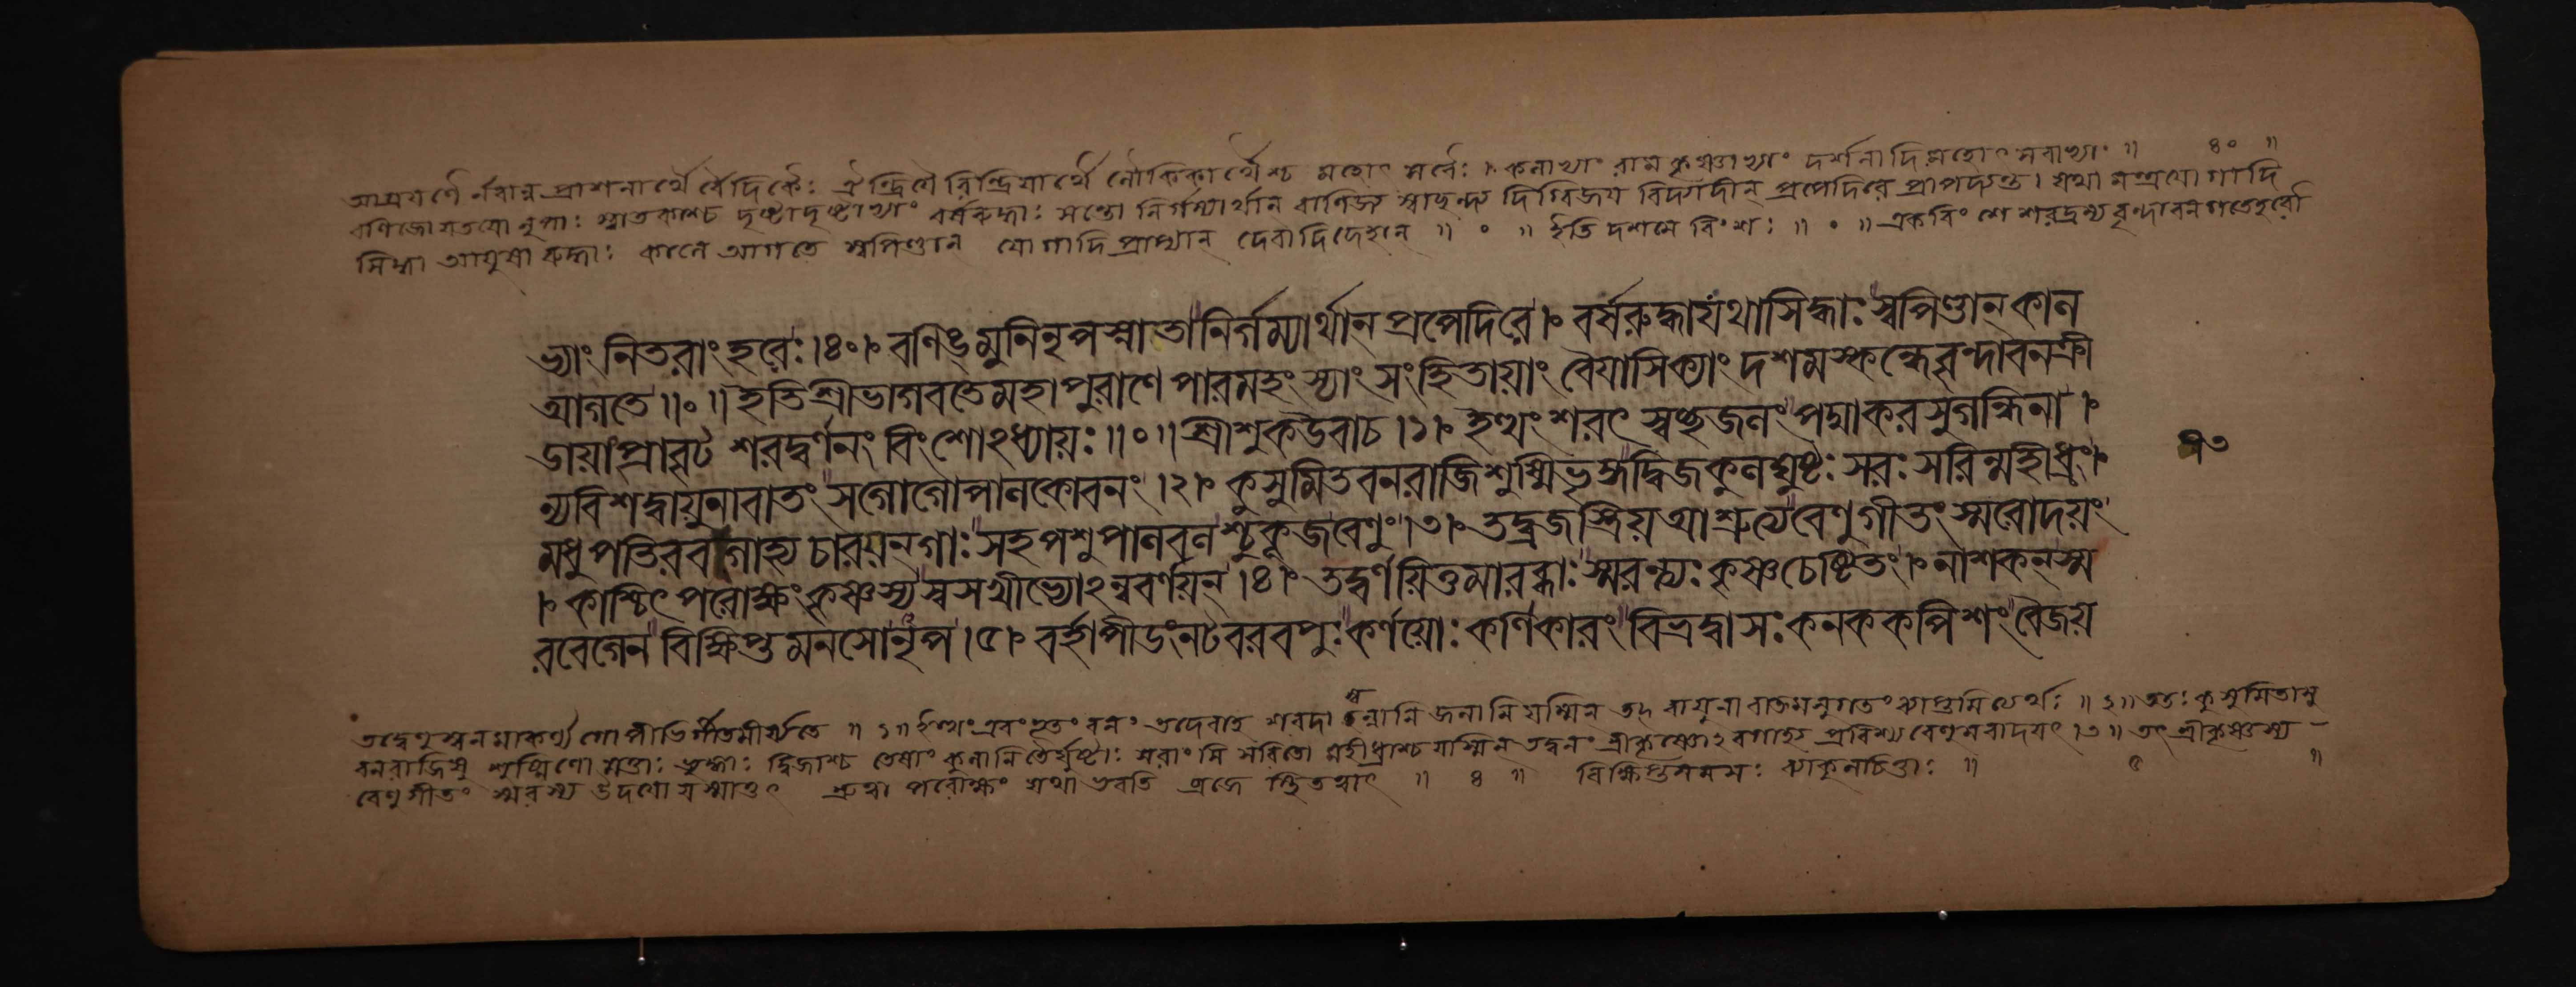 আগ্রযণৈ র্নবান্ন প্রাশনার্থৈ র্বৈদিকৈঃ ঐন্দ্রিযৈ রিন্দ্রিযার্থৈ লৌকিকার্থৈশ্চ মহোৎ সবৈঃ । কলাভ্যাং রামকৃষ্ণাভ্যাং দর্শনাদি মহোৎ সবাভ্যাং ॥ ৪০ ॥
বণিজো যতযো নৃপাঃ স্নাতকাশ্চ দৃষ্টাদৃষ্টাভ্যাং বর্ষরুদ্ধাঃ সন্তো নির্গম্যার্থান বাণিজ্য স্বাছন্দ্য দিগ্বিজয বিদ্যাদীন্ প্রপেদিরে প্রাপদ্যন্ত । যথা মন্ত্রযোগাদি
সিদ্ধা আযুষা রুদ্ধাঃ কালে আগতে স্বপিণ্ডান্ যোগাদি প্রাপ্যান্ দেবাদিদেহান্ ॥ ০ ॥ ইতি দশমে বিংশঃ ॥ ০ ॥ একবিংশে শরদ্রম্য বৃন্দাবন গতেহরৌ
ভ্যাং নিতরাং হরেঃ ।৪০। বণিঙ্মুনিনৃপস্নাতা নির্গম্যার্থান্ প্রপেদিরে । বর্ষরুদ্ধা যথা সিদ্ধাঃ স্বপিণ্ডান্ কাল
আগতে ॥০॥ ইতি শ্রীভাগবতে মহাপুরাণে পারমহংস্যাং সংহিতায়াং বৈয়াসিক্যাং দশমস্কন্ধে বৃন্দাবনক্রী
ডায়াং প্রাবৃট্ শরদ্বর্ণনং বিংশোঽধ্যায়ঃ ॥০॥ শ্রীশুকউবাচ ।১। ইত্থং শরৎ স্বচ্ছজলং পদ্মাকরসুগন্ধিনা ।
ন্যবিশদ্বায়ুনা বাতং সগোগোপালকোবনং ।২। কুসুমিতবনরাজিশুষ্মিভৃঙ্গদ্বিজকুলঘুষ্টঃ সরঃ সরিন্মহীধ্রং ।
১৩
মধুপতিরবগাহ্য চারয়ন্গাঃ সহপশুপালবলশ্চুকূজবেণুং ।৩। তদ্ব্রজস্ত্রিয় আশ্রুত্য বেণুগীতং স্মরোদয়ং
। কাশ্চিৎ পরোক্ষং কৃষ্ণস্য স্বসখীভ্যোঽন্ববর্ণয়ন্ ।৪। তদ্বর্ণয়িতুমারব্ধাঃ স্মরন্ত্যঃ কৃষ্ণচেষ্টিতং । নাশকন্ স্ম
রবেগেন বিক্ষিপ্তমনসো নৃপ ।৫। বর্হাপীডং নটবরবপুঃ কর্ণয়োঃ কর্ণিকারং বিভ্রদ্বাসঃ কনককপিশং বৈজয়
তদ্বেণুস্বনমাকর্ণ্য গোপীভির্গীতমীর্যতে ॥ ১ ॥ ইত্থং এবং ভূতং বনং তদেবাহ শরদা স্বচ্ছানি জলানি যস্মিন্ তৎ বাযুনা বাতমনুগতং ব্যাপ্তমিত্যর্থঃ ॥ ২ ॥ ততঃ কুসুমিতাসু
বনরাজিষু শুষ্মিণো মত্তাঃ ভৃঙ্গাঃ দ্বিজাশ্চ তেষাং কুলানি তৈর্ঘুষ্টাঃ সরাংসি সরিতো মহীধ্রাশ্চ যস্মিন্ তদ্বনং শ্রীকৃষ্ণোঽবগাহ্য প্রবিশ্য বেণুমবাদযৎ ।৩॥ তৎ শ্রীকৃষ্ণস্য
বেণুগীতং স্মরস্য উদযো যস্মাত্তৎ শ্রুত্বা পরোক্ষং যথা ভবতি ব্রজে স্থিতত্বাৎ ॥ ৪ ॥ বিক্ষিপ্তমনসঃ ব্যাকুলচিত্তাঃ ॥ ৫ ॥